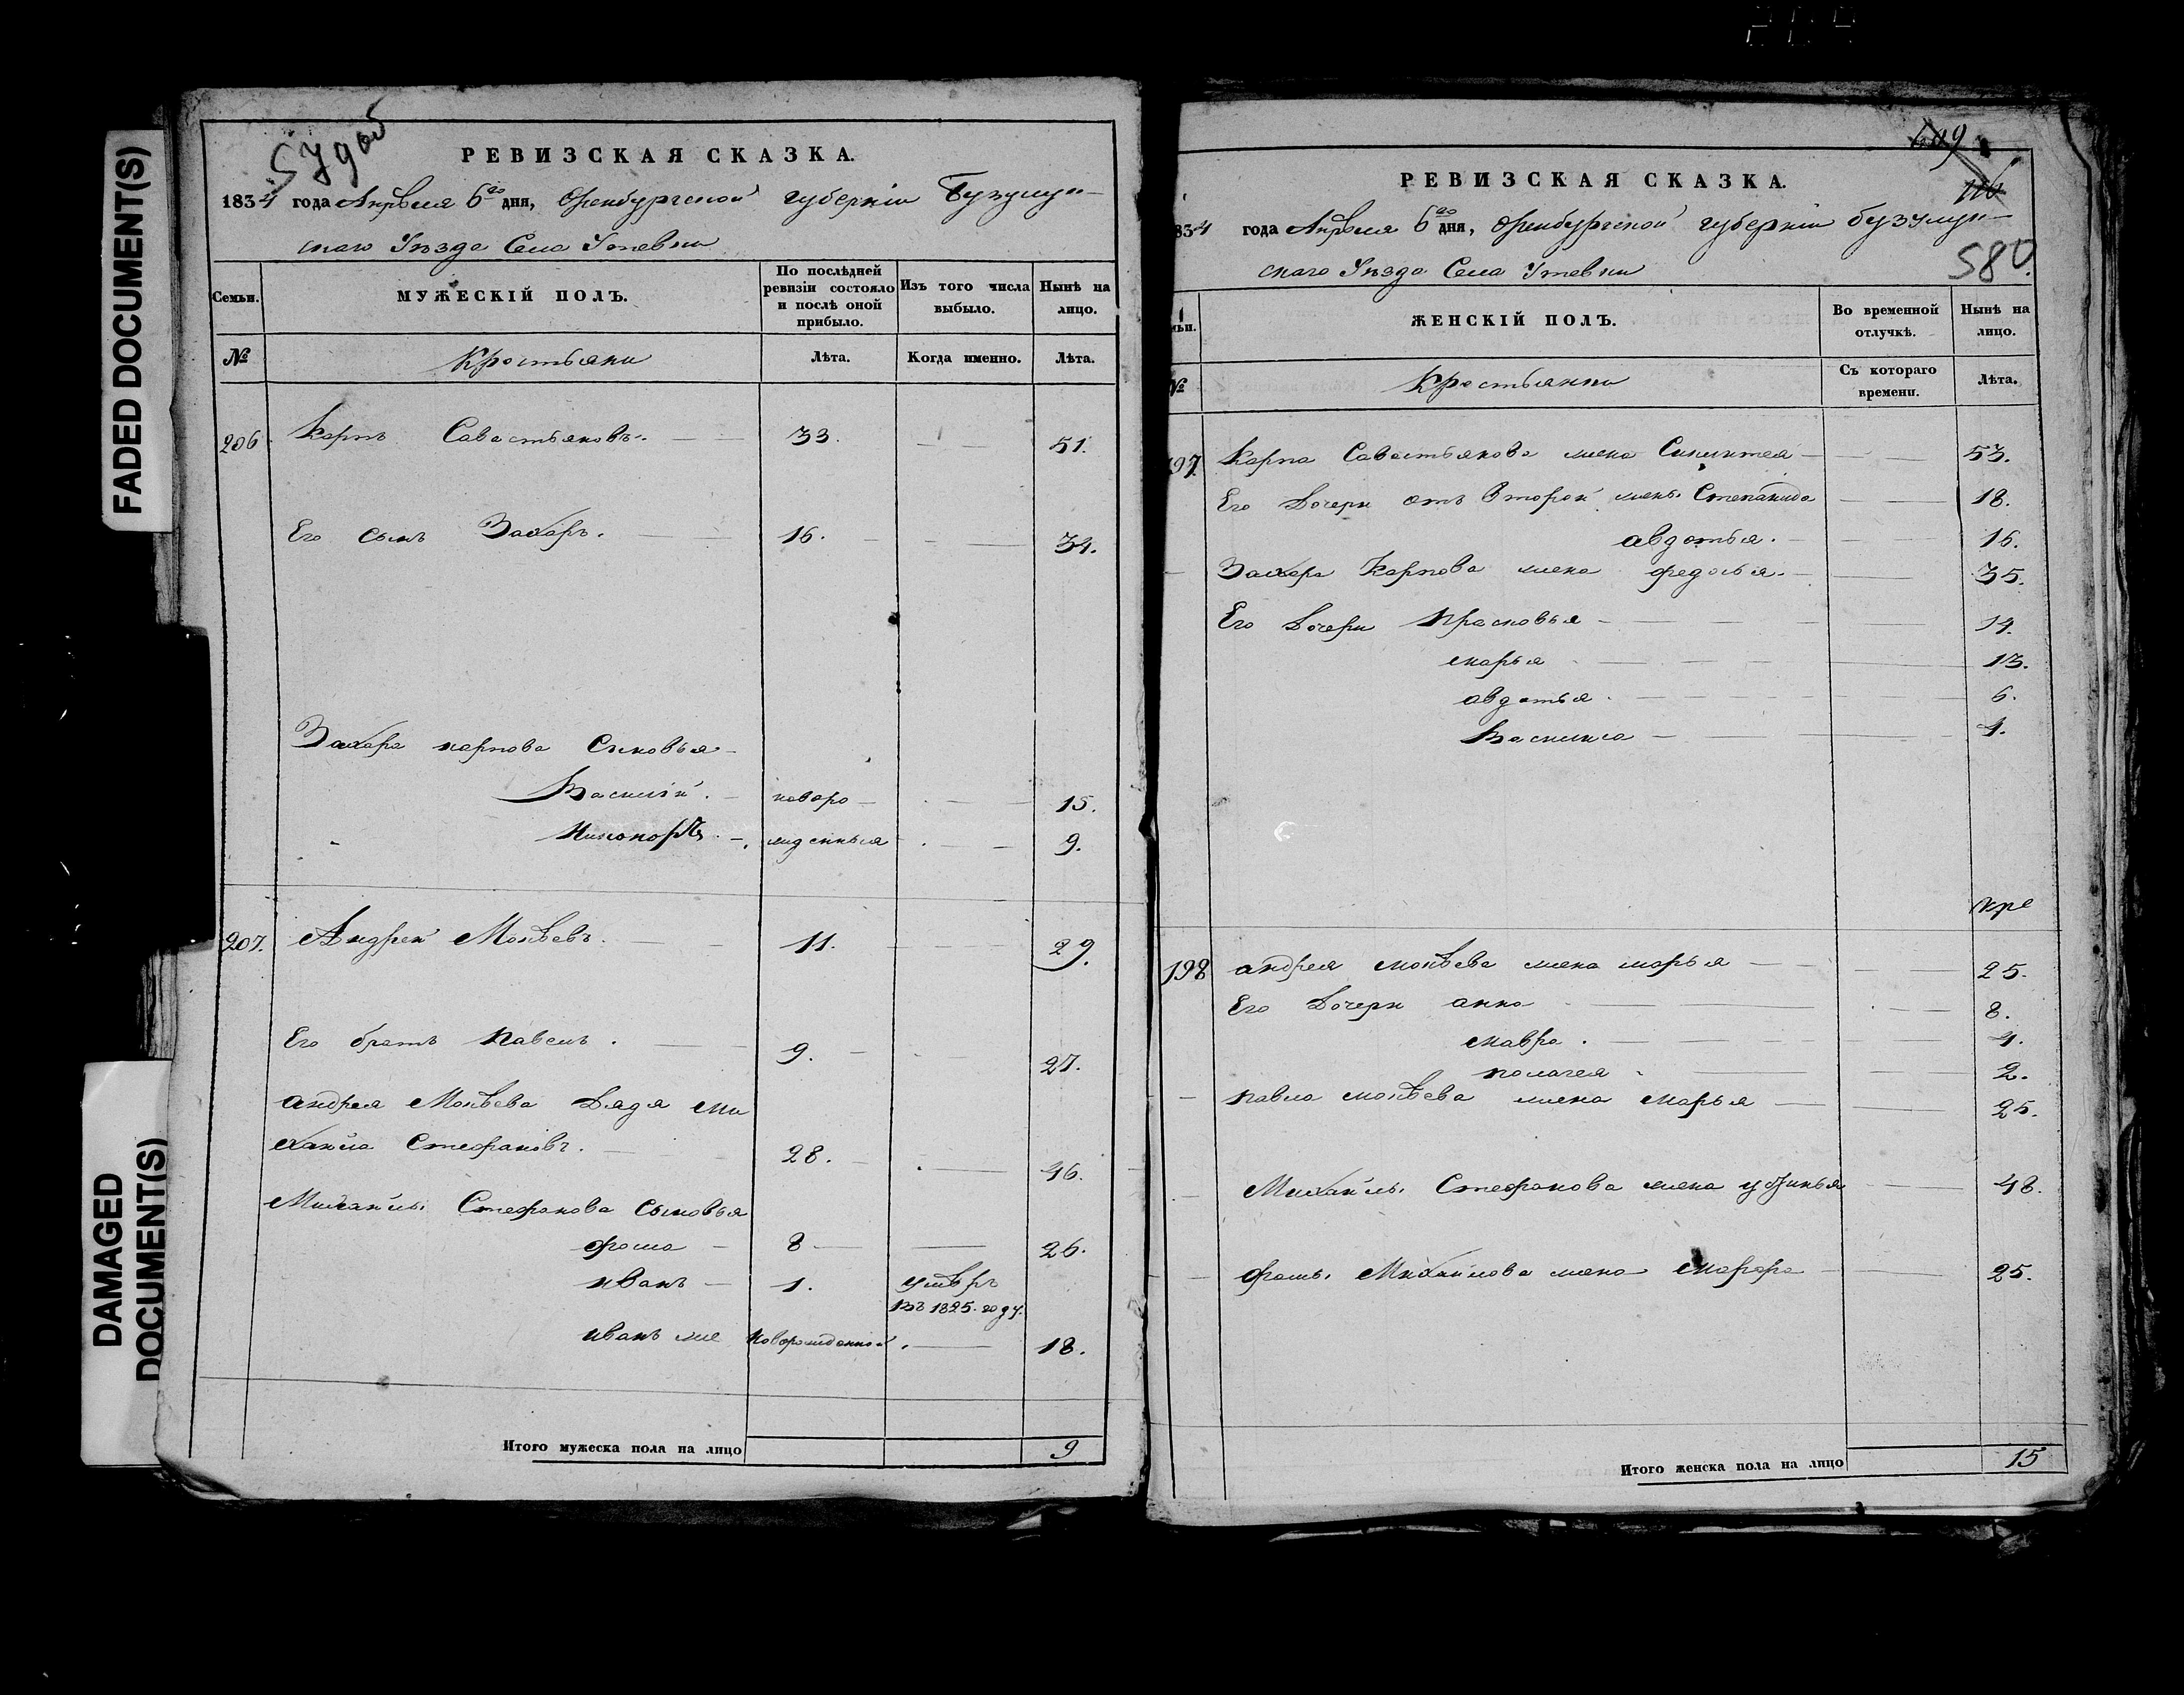 FADED DOCUMENT(S)
DAMAGED
DOCUMENT(S)
579 об
РЕВИЗСКАЯ СКАЗКА.
1834 года Апреля 6го дня, Оренбургской губерніи Бузулук-
скаго Уезда Села Утевки
Семьи. МУЖЕСКІЙ ПОЛЪ. По послѣдней ревизіи состояло и послѣ оной прибыло. Изъ того числа выбыло. Нынѣ на лицо.
№ Крестьяни Лѣта. Когда именно. Лѣта.
206. Карпъ Савастьяновъ. 33. 51.
Его сынъ Захаръ. 16. 34.
Захара карпова Сыновья
Василій. новоро 15.
Никоноръ жденныя 9.
207. Андрей Мокѣевъ. 11. 29.
Его братъ Павелъ. 9. 27.
андрея Мокѣева Дядя Ми
хаила Стефановъ. 28. 46.
Михайлы Стефанова Сыновья
фома 8 26.
иванъ 1. умѣръ
въ 1825. году.
иванъ же Новорожденной 18.
Итого мужеска пола на лицо 9
609
116
580.
РЕВИЗСКАЯ СКАЗКА.
834 года Апреля 6го дня, Оренбургской губерніи бузулук-
скаго Уезда Села Утевки
ьи. ЖЕНСКІЙ ПОЛЪ. Во временной отлучкѣ. Нынѣ на лицо.
№ Крестьянки Съ котораго времени. Лѣта.
197. Карпа Савастьянова жена 53.
Его Дочери отъ Второй жены Степанида 18.
авдотья. 16.
Захара Карпова жена федосья. 35.
Его Дочери прасковья 14.
марья 13.
авдотья 6.
Василиса 4.
кре
198 андрея мокѣева жена марья 25.
Его Дочери анна 8.
мавра. 4.
полагея 2.
павла мокѣева жена марья 25.
Михайлы Стефанова жена устинья 48.
фомы Михайлова жена марфа 25.
Итого женска пола на лицо 15